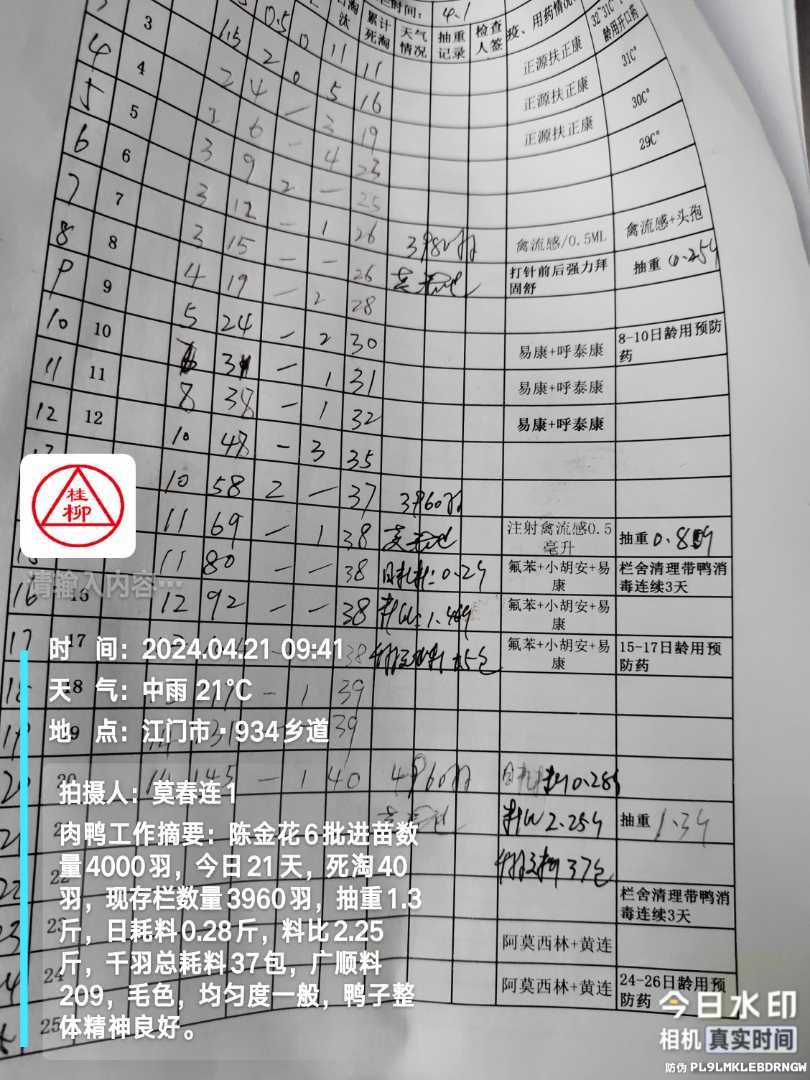 时间： 4.1
淘汰
累计死淘
天气情况
抽重记录
检查人签
疫、用药情况
龄用开口药
3 0.5 0 11 11 正源扶正康 31C°
4 4 1.5 2 0 5 16 正源扶正康 30C°
5 5 2 4 — 3 19 正源扶正康 29C°
6 6 3 6 — 4 23
7 7 3 9 2 — 25
8 8 3 12 — 1 26 禽流感/0.5ML 禽流感+头孢
9 9 3 15 — — 26 打针前后强力拜固舒 抽重 0.25斤
10 10 4 19 — 2 28
11 11 5 24 — 2 30 易康+呼泰康 8-10日龄用预防药
12 12 31 — 1 31 易康+呼泰康
8 38 — 1 32 易康+呼泰康
10 48 — 3 35
10 58 2 — 37 3960羽
11 69 — 1 38 注射禽流感0.5毫升 抽重 0.8斤
11 80 — — 38 日耗料: 0.2斤 氟苯+小胡安+易康 栏舍清理带鸭消毒连续3天
16 16 12 92 — — 38 氟苯+小胡安+易康
17 17 38 氟苯+小胡安+易康 15-17日龄用预防药
18 — 1 39
39
20 20 145 — 1 40 0.28斤
21 2.25斤 抽重 1.3斤
22 22 37包 栏舍清理带鸭消毒连续3天
23 23 阿莫西林+黄连
24 24 阿莫西林+黄连 24-26日龄用预防药
25
桂柳
请输入内容…
时 间：2024.04.21 09:41
天 气：中雨 21℃
地 点：江门市·934乡道
拍摄人：莫春连1
肉鸭工作摘要：陈金花6批进苗数
量4000羽，今日21天，死淘40
羽，现存栏数量3960羽，抽重1.3
斤，日耗料0.28斤，料比2.25
斤，千羽总耗料37包，广顺料
209，毛色，均匀度一般，鸭子整
体精神良好。
今日水印
相机 真实时间
防伪 PL9LMKLEBDRNGW